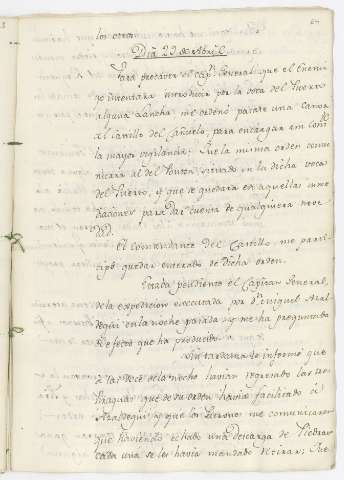 los otros
Dia 29 de Abril
Para precaver el Capn. General, que el Enemi-
go intentára introducir por la boca del Puerto
alguna Lancha me ordenó pasáse una Canoa
al Castillo del para encargar á su Comte.
la mayor vigilancia; Que la misma orden comu-
nicára al del Ponton, situado en la dicha boca
del Puerto, y que se quedára en aquellas inme-
diaciones para dar cuenta de qualquiera nove-
dad.
El comandante del Castillo, me parti-
cipó quedar enterado de dicha orden.
Estaba pendiente el Capitan General,
de la expedicion executada por Dn. Miguel
en la noche pasada, y me ha preguntado
efectos que ha producido
tarde se informó que
á las doce de la noche havian regresado las
Piraguas que de su orden havia facilitado á
y que los me comunicaron
que haviendo echado una descarga de Piedras
cada una se les havia mandado retirar; Que